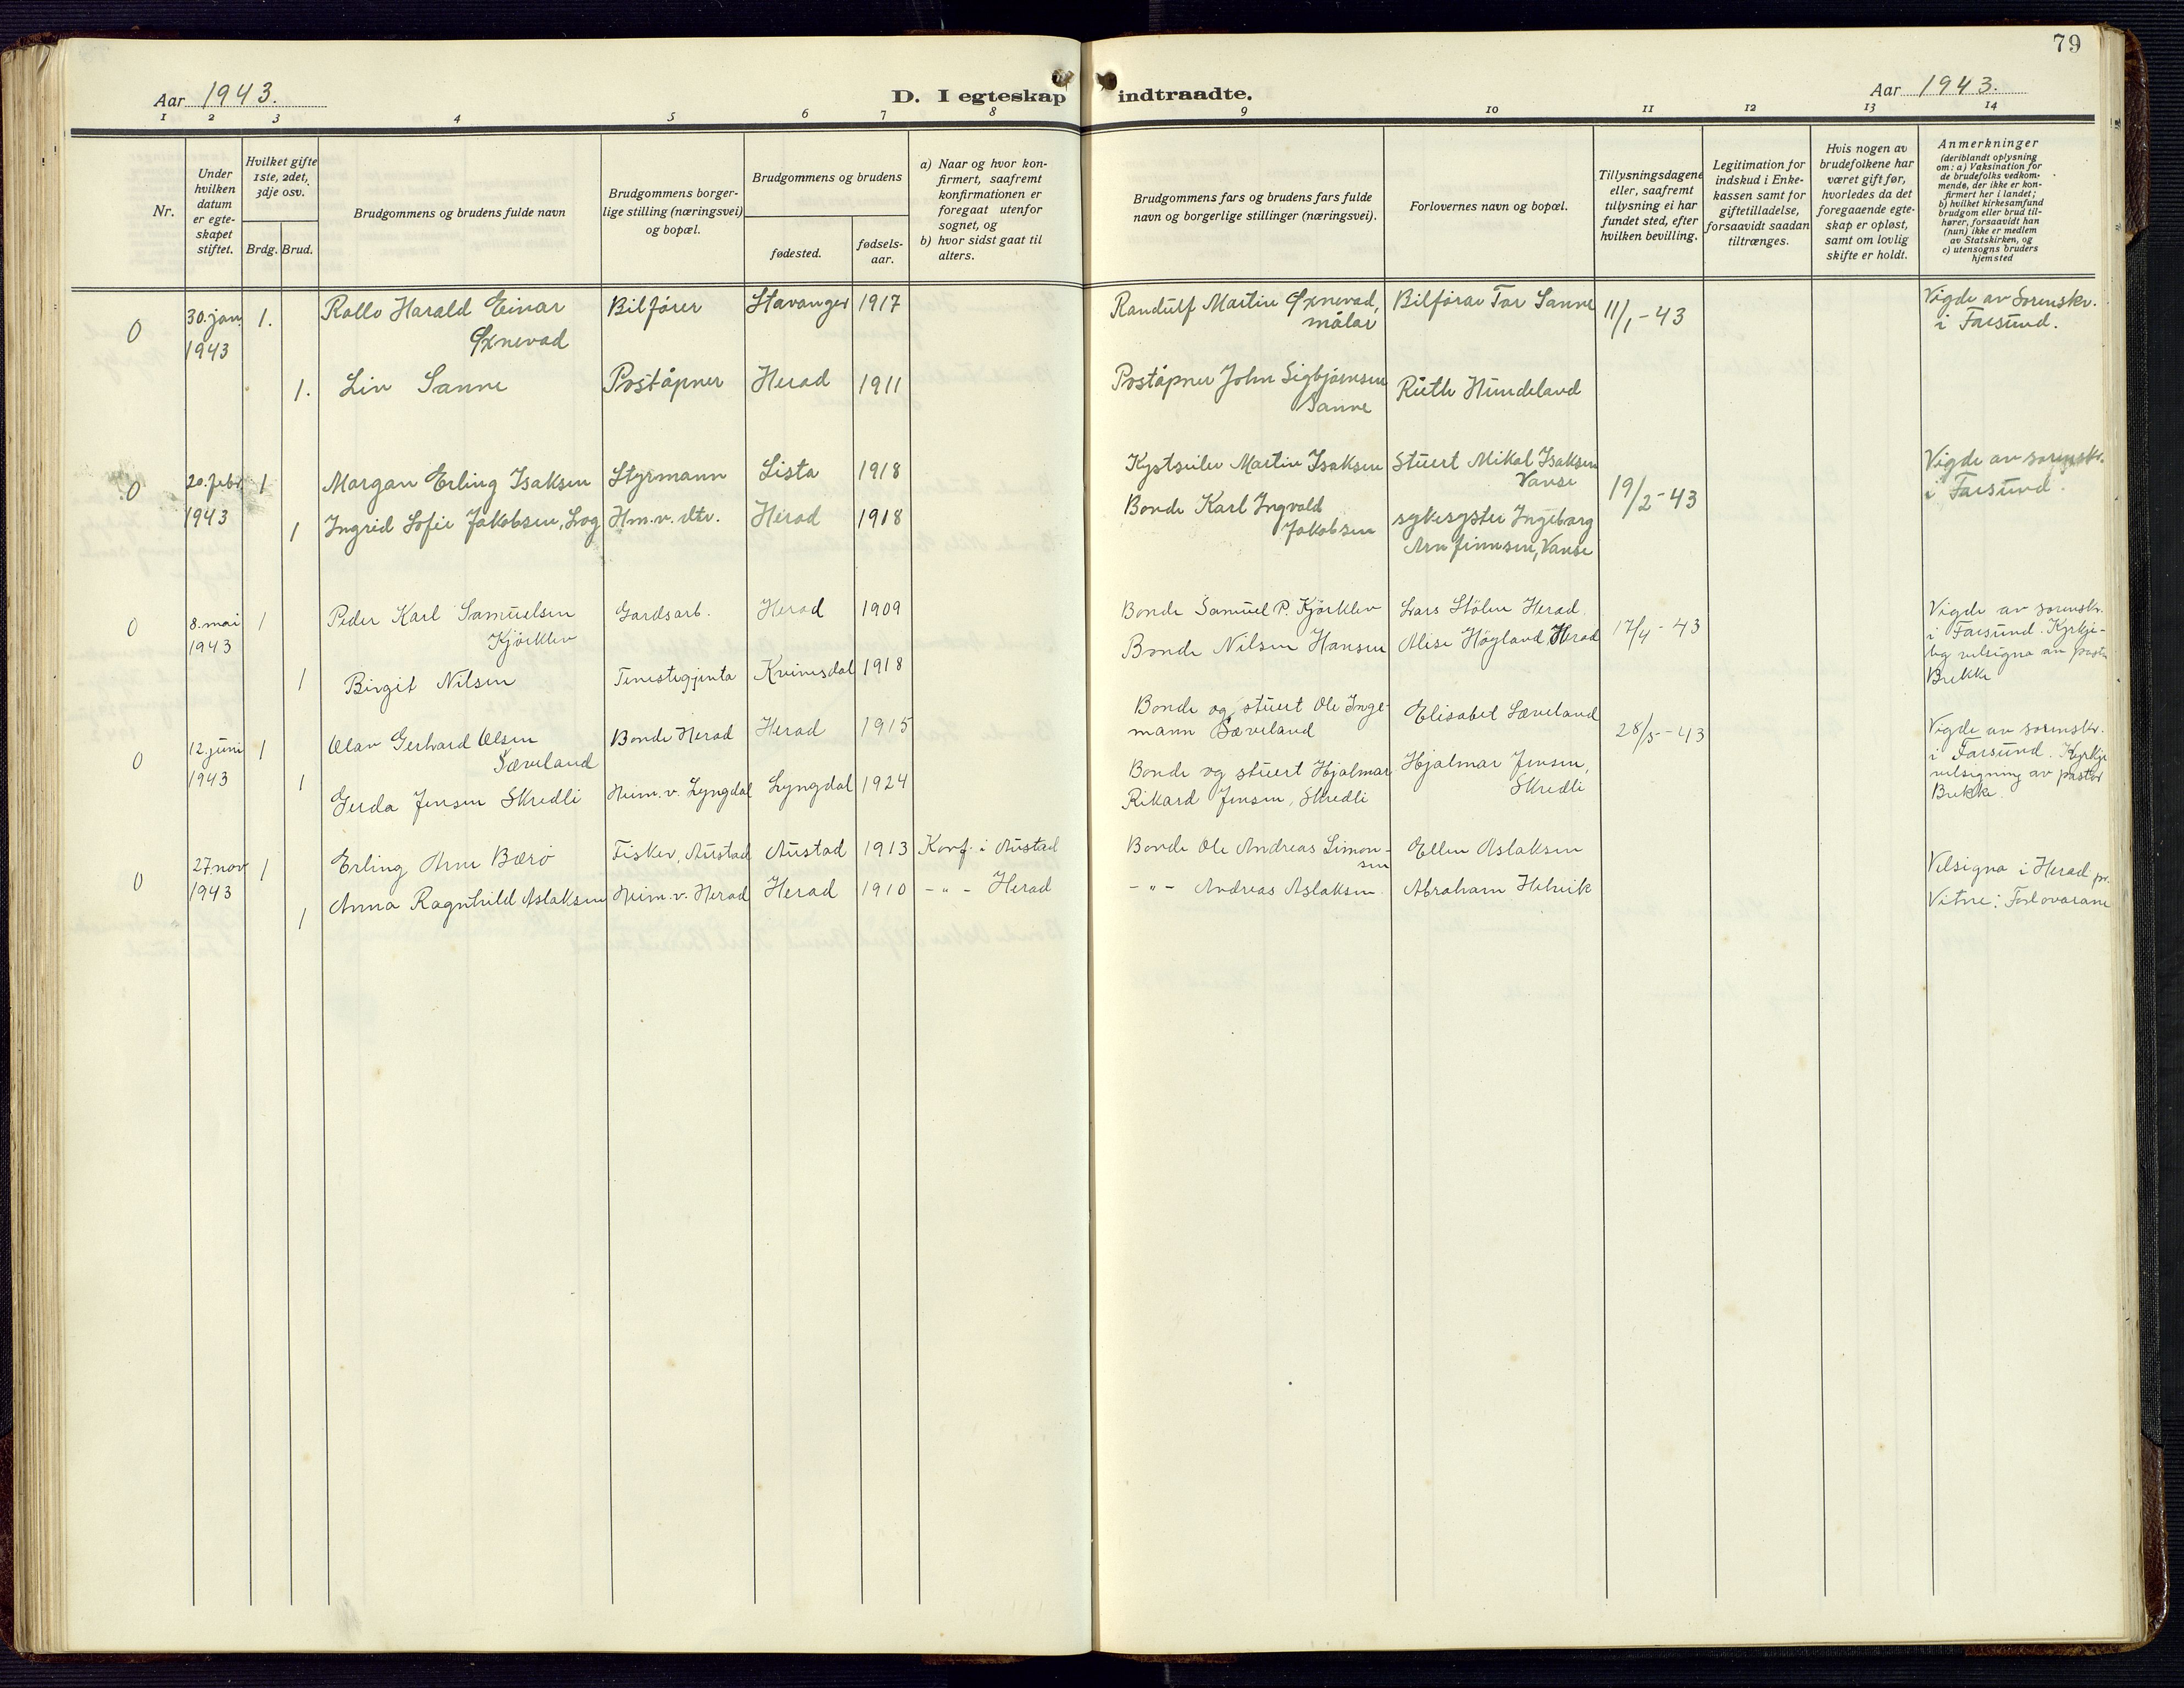 79
Aar 1943.
D. I egteskap indtraadte.
Aar 1943.
1 2 3 4 5 6 7 8 9 10 11 12 13 14
Nr.
Under
hvilken
datum
er egte-
skapet
stiftet.
Hvilket gifte
1ste, 2det,
3dje osv.
Brdg. Brud.
Brudgommens og brudens fulde navn
Brudgommens borger-
lige stilling (næringsvei)
og bopæl.
Brudgommens og brudens
fødested.
fødsels-
aar.
a) Naar og hvor kon-
firmert, saafremt
konfirmationen er
foregaat utenfor
sognet, og
b) hvor sidst gaat til
alters.
Brudgommens fars og brudens fars fulde
navn og borgerlige stillinger (næringsvei).
Forlovernes navn og bopæl.
Tillysningsdagene
eller, saafremt
tillysning ei har
fundet sted, efter
hvilken bevilling.
Legitimation for
indskud i Enke-
kassen samt for
giftetilladelse,
forsaavidt saadan
tiltrænges.
Hvis nogen av
brudefolkene har
været gift før,
hvorledes da det
foregaaende egte-
skap er opløst,
samt om lovlig
skifte er holdt.
Anmerkninger
(deriblandt oplysning
om: a) Vaksination for
de brudefolks vedkom-
mende, der ikke er kon-
firmert her i landet;
b) hvilket kirkesamfund
brudgom eller brud til-
hører, forsaavidt han
(hun) ikke er medlem
av Statskirken, og
c) utensogns bruders
hjemsted
0 30. jan 1. Rollo Harald Einar Bilfører Stavanger 1917 Randulf Martin Øxnevad, Bilførar Tor Sanne 11/1-43 Vigde av Sorenskr.
1943 Øxnevad målar i Farsund.
1. Liv Sanne Poståpner Herad 1911 Poståpner John Sigbjørnsen Ruth Hundeland
Sanne
0 20. febr. 1 Morgan Erling Isaksen Styrmann Lista 1918 Kystseiler Martin Isaksen Stuert Mikal Isaksen 19/2-43 Vigde av sorenskr.
Vanse i Farsund.
1943 1 Ingrid Sofie Jakobsen, Log Hm.v. dtr. Herad 1918 Bonde Karl Ingvald sykesyster Ingeborg
Jakobsen Arnfinnsen, Vanse
0 8. mai 1 Peder Karl Samuelsen Gardsarb. Herad 1909 Bonde Samuel P. Kjørklev Lars Stölen Herad. 17/4-43 Vigde av sorenskr.
1943 Kjörklev Bonde Nilsen Hansen Alise Högland Herad i Farsund. Kyrkje-
leg velsigna av pastor
1 Birgit Nilsen Tenestegjenta Kvinesdal 1918 Brekke
0 12. juni 1 Olav Gerhard Olsen Bonde Herad Herad 1915 Bonde og stuert Ole Inge- Elisabet Sæveland 28/5-43 Vigde av sorenskr.
1943 Sæveland mann Sæveland i Farsund. Kyrkje
1 Gerda Jensen Skredli Heim.v. Lyngdal Lyngdal 1924 Bonde og stuert Hjalmar Hjalmar Jensen, velsigning av pastor
Rikard Jensen, Skredli Skredli Brekke.
0 27. nov 1 Erling Arne Bærö Fisker, Austad Austad 1913 Konf. i Austad Bonde Ole Andreas Simon- Ellen Aslaksen Velsigna i Herad pr.
sen
1943 1 Anna Ragnhild Aslaksen Heim.v. Herad Herad 1910 - " - Herad - " - Andreas Aslaksen Abraham Helvik Vitne: Forlovarane